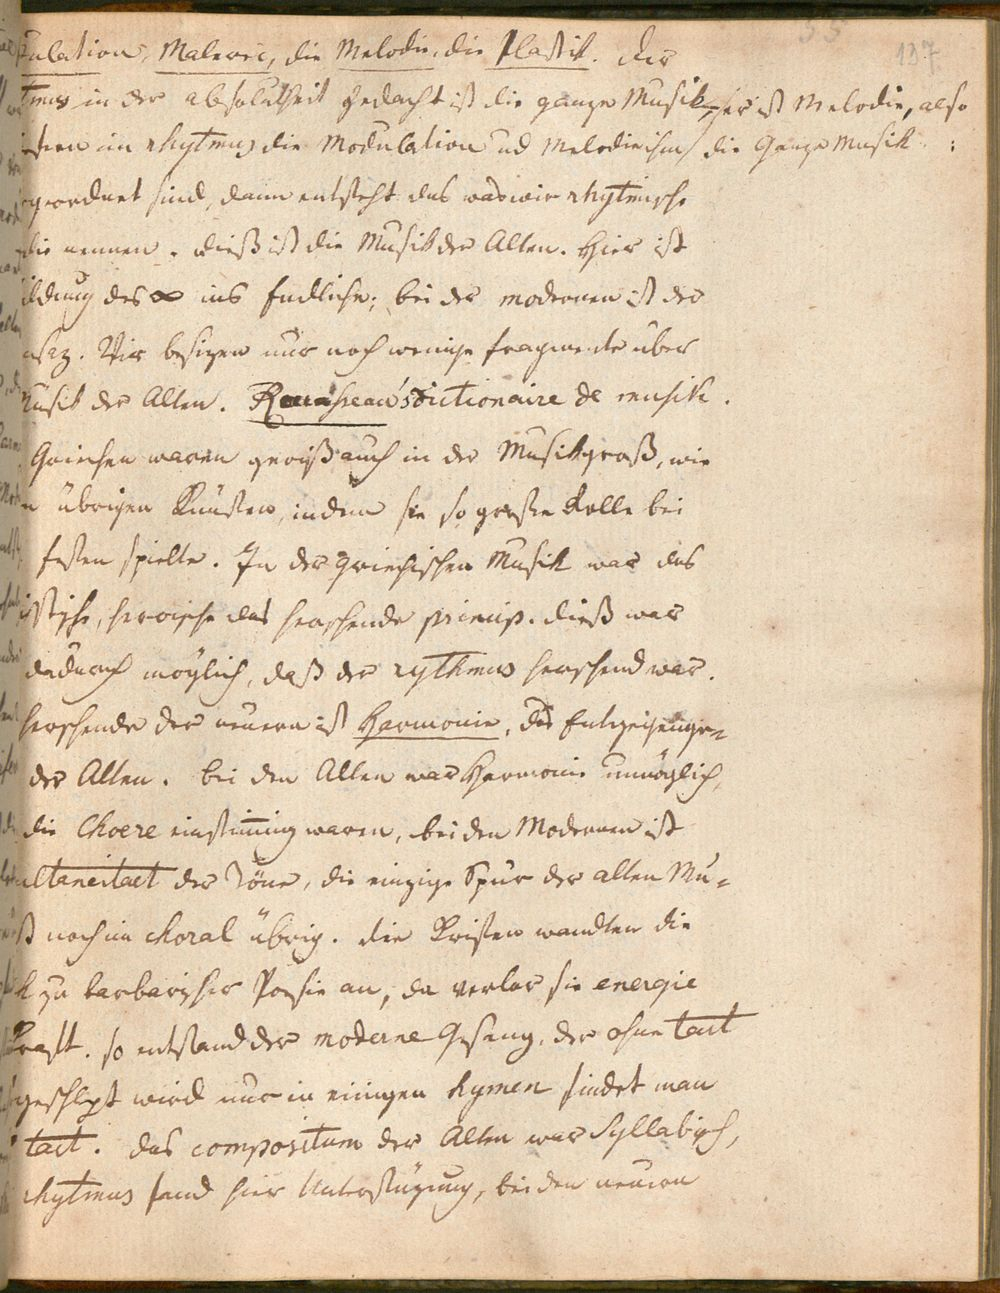 55 137
ulation, Malerei, die Melodie, die Plastik. der
tmus in der absolutheit gedacht ist die ganze Musik, er ist Melodie, also
im rhytmus die Modulation ud Melodie ist die Ganze Musik.
geordnet sind, dann entsteht das was wir rhytmische
die nennen. dieß ist die Musik der Alten. Hier ist
ildung des ∞ ins Endliche; bei der modernen ist der
nsaz. Wir besizen nur noch wenige fragmente über
Musik der Alten. Rousseau's dictionaire de musik.
Griechen waren gewiß auch in der Musik groß, wie
n übrigen Künsten, indem sie so große Rolle bei
festen spielte. In der griechischen Musik war das
istische, heroische das herschende princip. dieß war
dadurch möglich, daß der rythmus herschend war.
herschende der neuern ist Harmonie, das Entgegenge=
der Alten. bei den Alten war Harmonie unmöglich,
die Choere einstimmig waren, bei den Modernen ist
ultaneitaet der Töne, die einzige Spur der alten Mu=
ist noch im choral übrig. die Kristen wandten die
k zu barbarischer Poesie an, da verlor sie energie
Kraft. so entstand der moderne Gesang, der ohne tact
geschlept wird nur in einigen hymen findet man
tact. das compositum der Alten war Syllabisch,
rhytmus fand hier Unterstüzung, bei den neuern